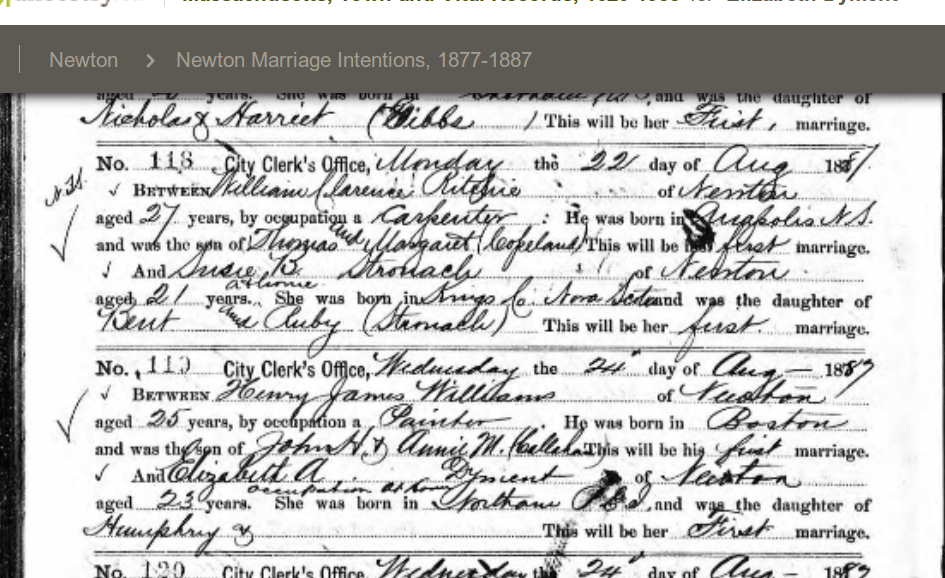 Newton > Newton Marriage Intentions, 1877-1887
aged years. She was born in , and was the daughter of
Nicholas & Harriet (Gibbs ) This will be her First, marriage.
No. 118 City Clerk's Office, Monday the 22 day of Aug 1887
✓ BETWEEN William Clarence Ritchie of Newton
aged 27 years, by occupation a Carpenter He was born in Anapolis N.S.
and was the son of Thomas and Margaret (Copeland) This will be his first marriage.
✓ And Susie B. Stronach of Newton
at home
aged 21 years. She was born in Kings Co. Nova Scotia and was the daughter of
Bent and Ruby (Stronach) This will be her first. marriage.
No. 119 City Clerk's Office, Wednesday the 24" day of Aug — 1887
✓ BETWEEN Henry James Williams of Newton
aged 25 years, by occupation a Painter He was born in Boston
and was the son of John H. & Annie M. This will be his first marriage.
✓ And Elizabeth A. Dyment of Newton
occupation at home
aged 23 years. She was born in Northam P.E.I. and was the daughter of
Humphry & This will be her First marriage.
No. 120 City Clerk's Office, Wednesday the 24" day of Aug — 1887